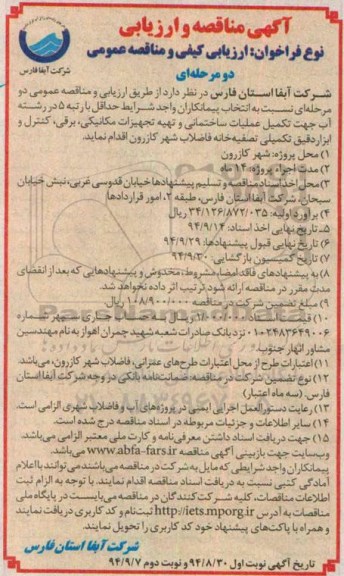 آگهی مناقصه و ارزیابی
نوع فراخوان: ارزیابی کیفی و مناقصه عمومی
دو مرحله‌ای
شرکت آبفا فارس
شرکت آبفا استان فارس در نظر دارد از طریق ارزیابی و مناقصه عمومی دو
مرحله‌ای نسبت به انتخاب پیمانکاران واجد شرایط حداقل با رتبه ۵ در رشته
آب جهت تکمیل عملیات ساختمانی و تهیه تجهیزات مکانیکی، برقی، کنترل و
ابزار دقیق تکمیلی تصفیه‌خانه فاضلاب شهر کازرون اقدام نماید.
۱) محل پروژه: شهر کازرون
۲) مدت اجراء پروژه:
۳) محل اخذ اسناد مناقصه و تسلیم پیشنهادها خیابان قدوسی غربی، نبش خیابان
سبحان، شرکت آبفا استان فارس، طبقه ۲، امور قراردادها
۴) برآورد اولیه: ۳۴/۱۲۶/۸۷۲/۰۳۵ ریال
۵ـ تاریخ نهایی اخذ اسناد: ۹۴/۹/۱۴
۶) تاریخ نهایی قبول پیشنهادها: ۹۴/۹/۲۹
۷) تاریخ کمیسیون بازگشایی: ۹۴/۹/۳۰
۸) به پیشنهادهای فاقد امضاء، مشروط، مخدوش و پیشنهادهایی که بعد از انقضای
مدت مقرر در مناقصه ارائه شود ترتیب اثر داده نخواهد شد.
۹) مبلغ تضمین شرکت در مناقصه ۱۰۸/۹۰۰/۰۰۰ ریال.
۱۰) ریال جاری سپهر شماره
نزد بانک صادرات شعبه شهید چمران اهواز به نام مهندسین
مشاور انهار جنوب
۱۱) اعتبارات طرح از محل اعتبارات طرح‌های عمرانی، فاضلاب شهر کازرون، می‌باشد.
۱۲) نوع تضمین شرکت در مناقصه: ضمانت‌نامه بانکی در وجه شرکت آبفا استان
فارس. (سه ماه اعتبار)
۱۳) رعایت دستورالعمل اجرایی ایمنی در پروژه‌های آب و فاضلاب شهری الزامی است.
۱۴) سایر اطلاعات و جزئیات مربوطه در اسناد مناقصه درج شده است.
۱۵) جهت دریافت اسناد داشتن معرفی‌نامه و کارت ملی معتبر الزامی می‌باشد.
وب‌سایت جهت بازبینی آگهی مناقصه www.abfa-fars.ir می‌باشد.
پیمانکاران واجد شرایطی که مایل به شرکت در مناقصه می‌باشند می‌توانند با اعلام
آمادگی کتبی نسبت به دریافت اسناد مناقصه اقدام نمایند. با توجه به الزام ثبت
اطلاعات مناقصات، کلیه شرکت‌کنندگان در مناقصه می‌بایست در پایگاه ملی
مناقصات به آدرس http://iets.mporg.ir ثبت‌نام و کد کاربری دریافت نمایند
و همراه با پاکت‌های پیشنهاد خود کد کاربری را تحویل نمایند.
شرکت آبفا استان فارس
تاریخ آگهی نوبت اول ۹۴/۸/۳۰ و نوبت دوم ۹۴/۹/۷